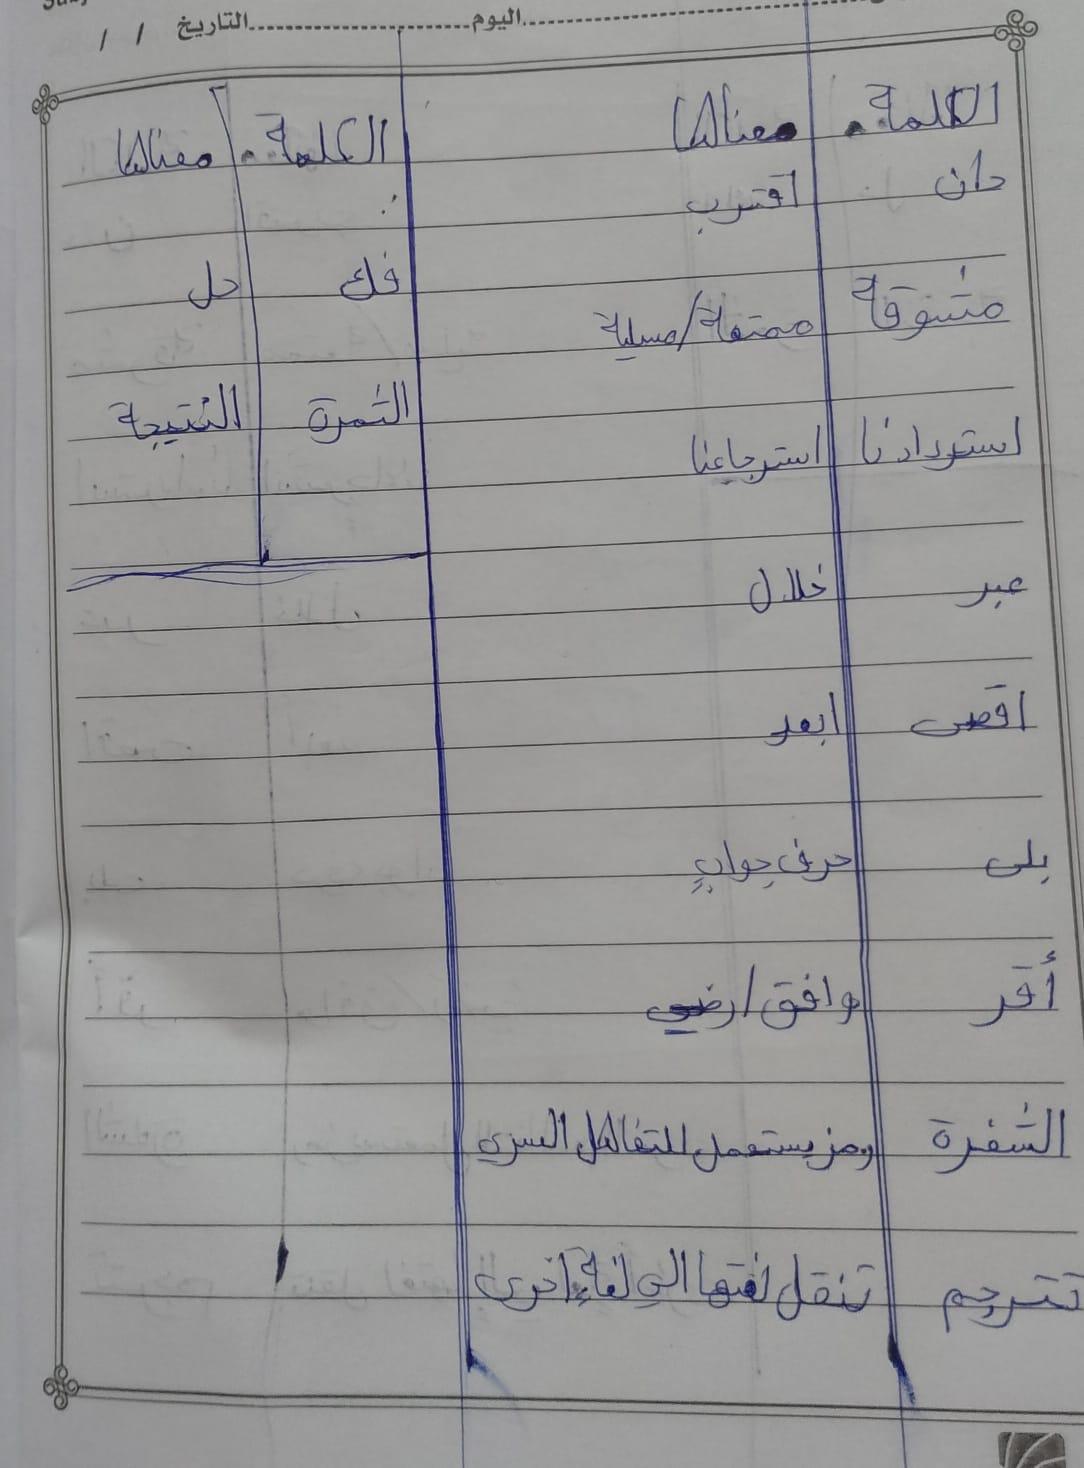 اليوم........................التاريخ / /
الكلمة. معناها
دان اقترب
مشوقة ممتعة/مسلية
استردادنا استرجاعنا
عبر خلال
اقصى ابعد
بلى حرف جوابٍ
أقر وافق/رضي
الشفرة رمز يستعمل للتفاهل السري
تترجم تنقل لغتها الى لغةٍ اخرى
الكلمة. معناها
فك حل
الثمرة النتيجة